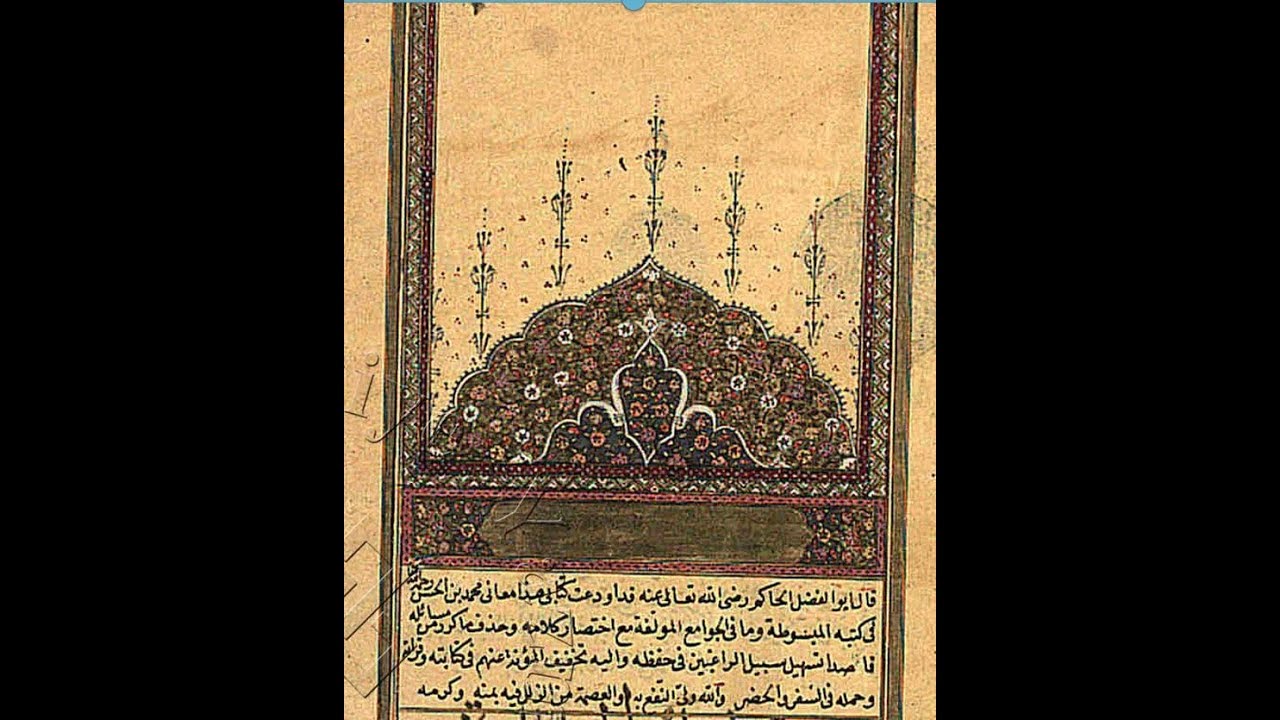 قال ابوالفضل الحاكم رضى الله تعالى عنه قد اودعت كتابى هذا معانى محمد بن الحسن رحمه الله
فى كتبه المبسوطة وما فى الجوامع المؤلفة مع اختصار كلامه وحذف ما كرر من مسائله
قاصدا تسهيل سبيل الراغبين فى حفظه واليه تخفيف المؤنة عنهم فى كتابته وقرائته
وحمله فى السفر والحضر والله ولى النفع به والعصمة من الزلل فيه بمنه وكرمه